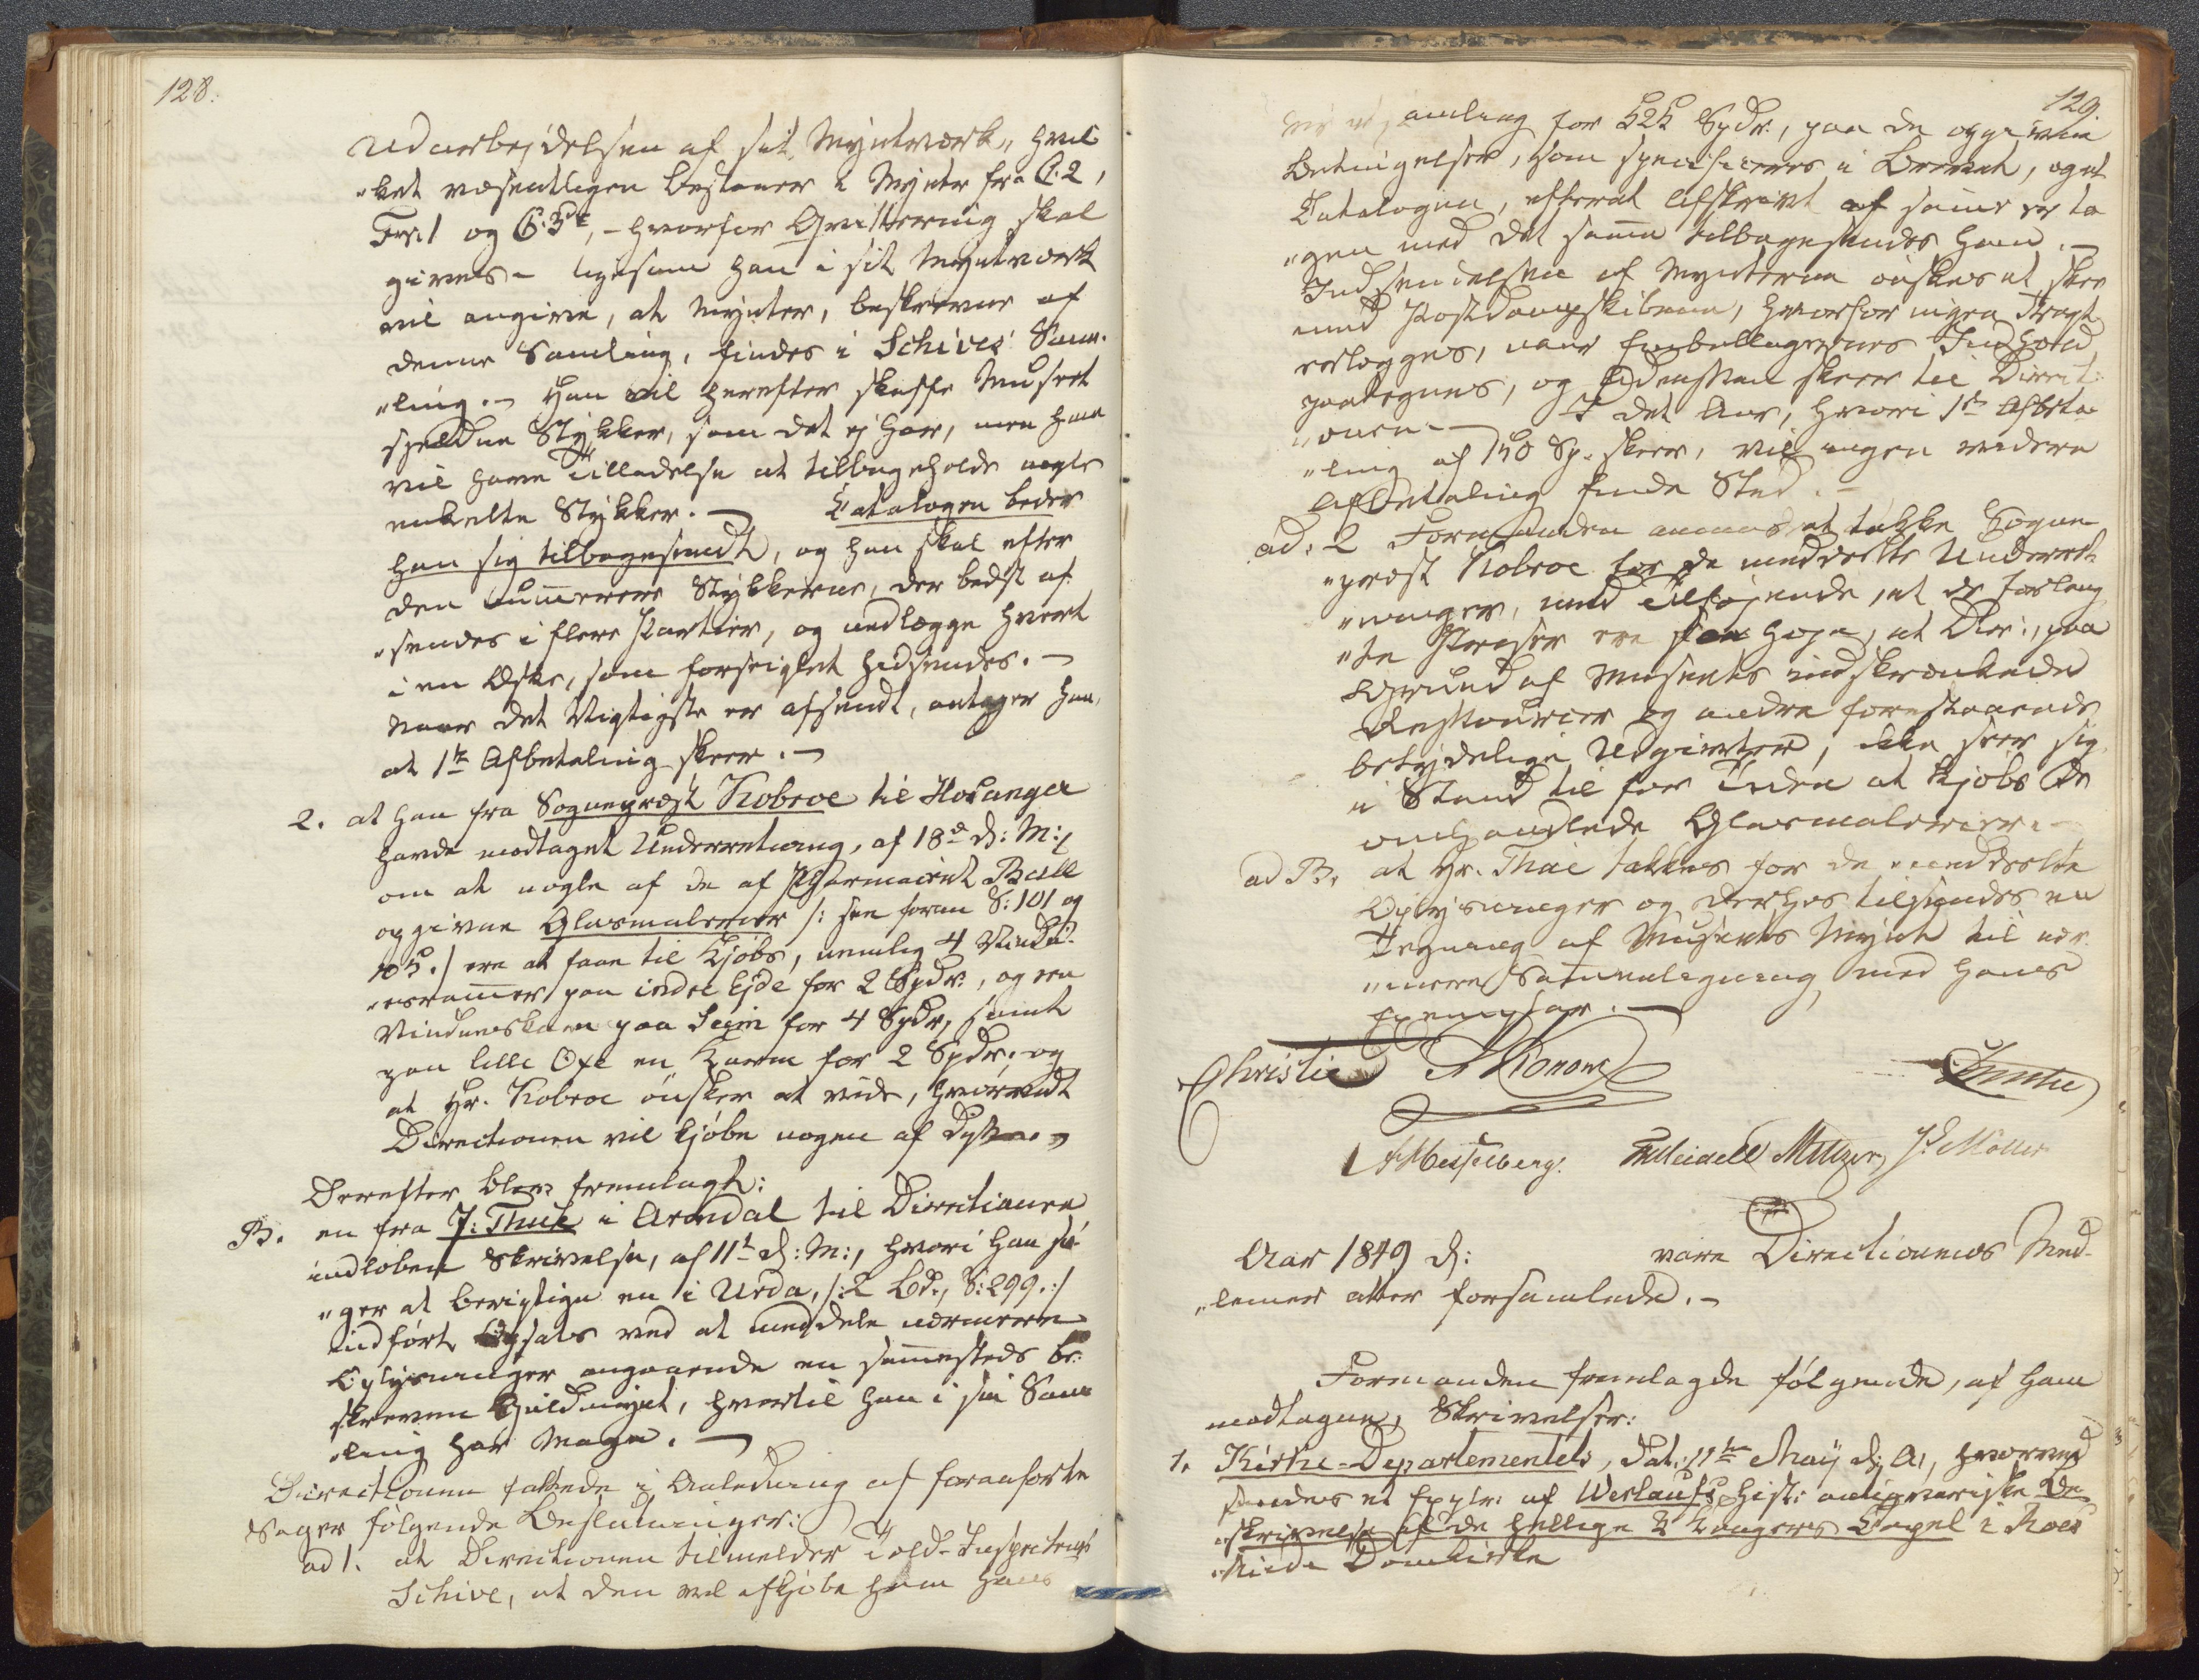 128.
Udarbejdelsen af sit Myntværk, hvil
"ket væsentligen bestaaer i Mynter fra C. 2,
Fr. 1 og C. 5te, - hvorfor Qvittering skal
gives - ligesom han i sit Myntværk
vil angive, at Mynter, beskrevne af
denne Samling, findes i Schives' Sam-
"ling. - Han vil herefter skaffe Museet
sjeldne Stykker, som det ej har, men han
vil have Tilladelse at tilbageholde nogle
enkelte Stykker. - Catalogen beder
han sig tilbagesendt, og han skal efter
den numerere Stykkerne, der bedst af-
"sendes i flere Partier, og nedlægge hvert
i en Æske, som forseiglet hidsendes. -
Naar det Vigtigste er afsendt, antager han,
at 1te Afbetaling skeer. -
2. at han fra Sognepræst Kobroe til Hosanger
havde modtaget Underretning, af 18de d: M:,
om at nogle af de af Pharmaceut Bull
opgivne Glasmalerier /: see foran S: 101 og
105./ ere at faae til Kjøbs, nemlig 4 Vindu-
"esrammer paa indre Eide for 2 Spdr., og een
Vindueskarm paa Seim for 4 Spdr, samt
paa lille Oxe en Karm for 2 Spdr. og
at Hr. Kobroe ønsker at vide, hvorvidt
Directionen vil kjøbe nogen af Dysse. -
Derefter blev fremlagt:
B. en fra J: Thue i Arendal til Directionen
indløben Skrivelse, af 11te d: M:, hvori han sø-
"ger at berigtige en i Urda, /: 2 Bd., S: 299. :/
indført Opsats ved at meddele nærmere
Oplysninger angaaende en sammesteds be-
skreven Guldmynt, hvortil han i sin Sam-
"ling har Mage. -
Directionen fattede i Anledning af foranførte
Sager følgende Beslutninger:
ad 1. at Directionen tilmelder Told-Inspecteur
Schive, at den vil afkjøbe ham hans
129.
Myntsamling for 525 Spdr., paa de opgivne
Betingelser, som specificeres i Brevet, og at
Catalogen, efterat Afskrivt af samme er ta
"gen med det samme tilbagesendes ham. -
Indsendelsen af Mynterne ønskes at skee
med Postdampskibene, hvorfor ingen Fragt
erlægges, naar Emballagernes Indhold
paategnes, og Udskriften skeer til Direct-
"onen. - I det Aar, hvori 1te Afbeta-
"ling af 150 Sp. skeer, vil ingen videre
Afbetaling finde Sted. -
ad: 2 Formanden anmodes at takke Sogne-
"præst Kobroe for de meddeelte Underret-
"ninger, med Tilføjende, at de forlang
"te Præiser ere saa høje, at Dir:, paa
Grund af Museets indskrænkede
Ressourcer og andre forestaaende
betydelige Udgivter, ikke seer sig
i Stand til for Tiden at kjøbe de
omhandlede Glasmalerier. -
ad B. at Hr. Thue takkes for de meddeelte
Oplysninger og derhos tilsendes en
Tegning af Museets Mynt til nær-
"mere Sammenligning med hans
Exemplar. -
Christie A Konow
A Hesselberg. Meidell Meltzer J Møller
Aar 1849 d: vare Directionens Med-
"lemer atter forsamlede. -
Formanden fremlagde følgende, af ham
modtagne, Skrivelser:
1. Kirke-Departementets, dat: 11te Maij d: A:, hvorved
sendes et Explr: af Werlaufs hist: antiqvariske Be
"skrivelse af de hellige 3 Kongers Capel i Roes
"kilde Domkirke